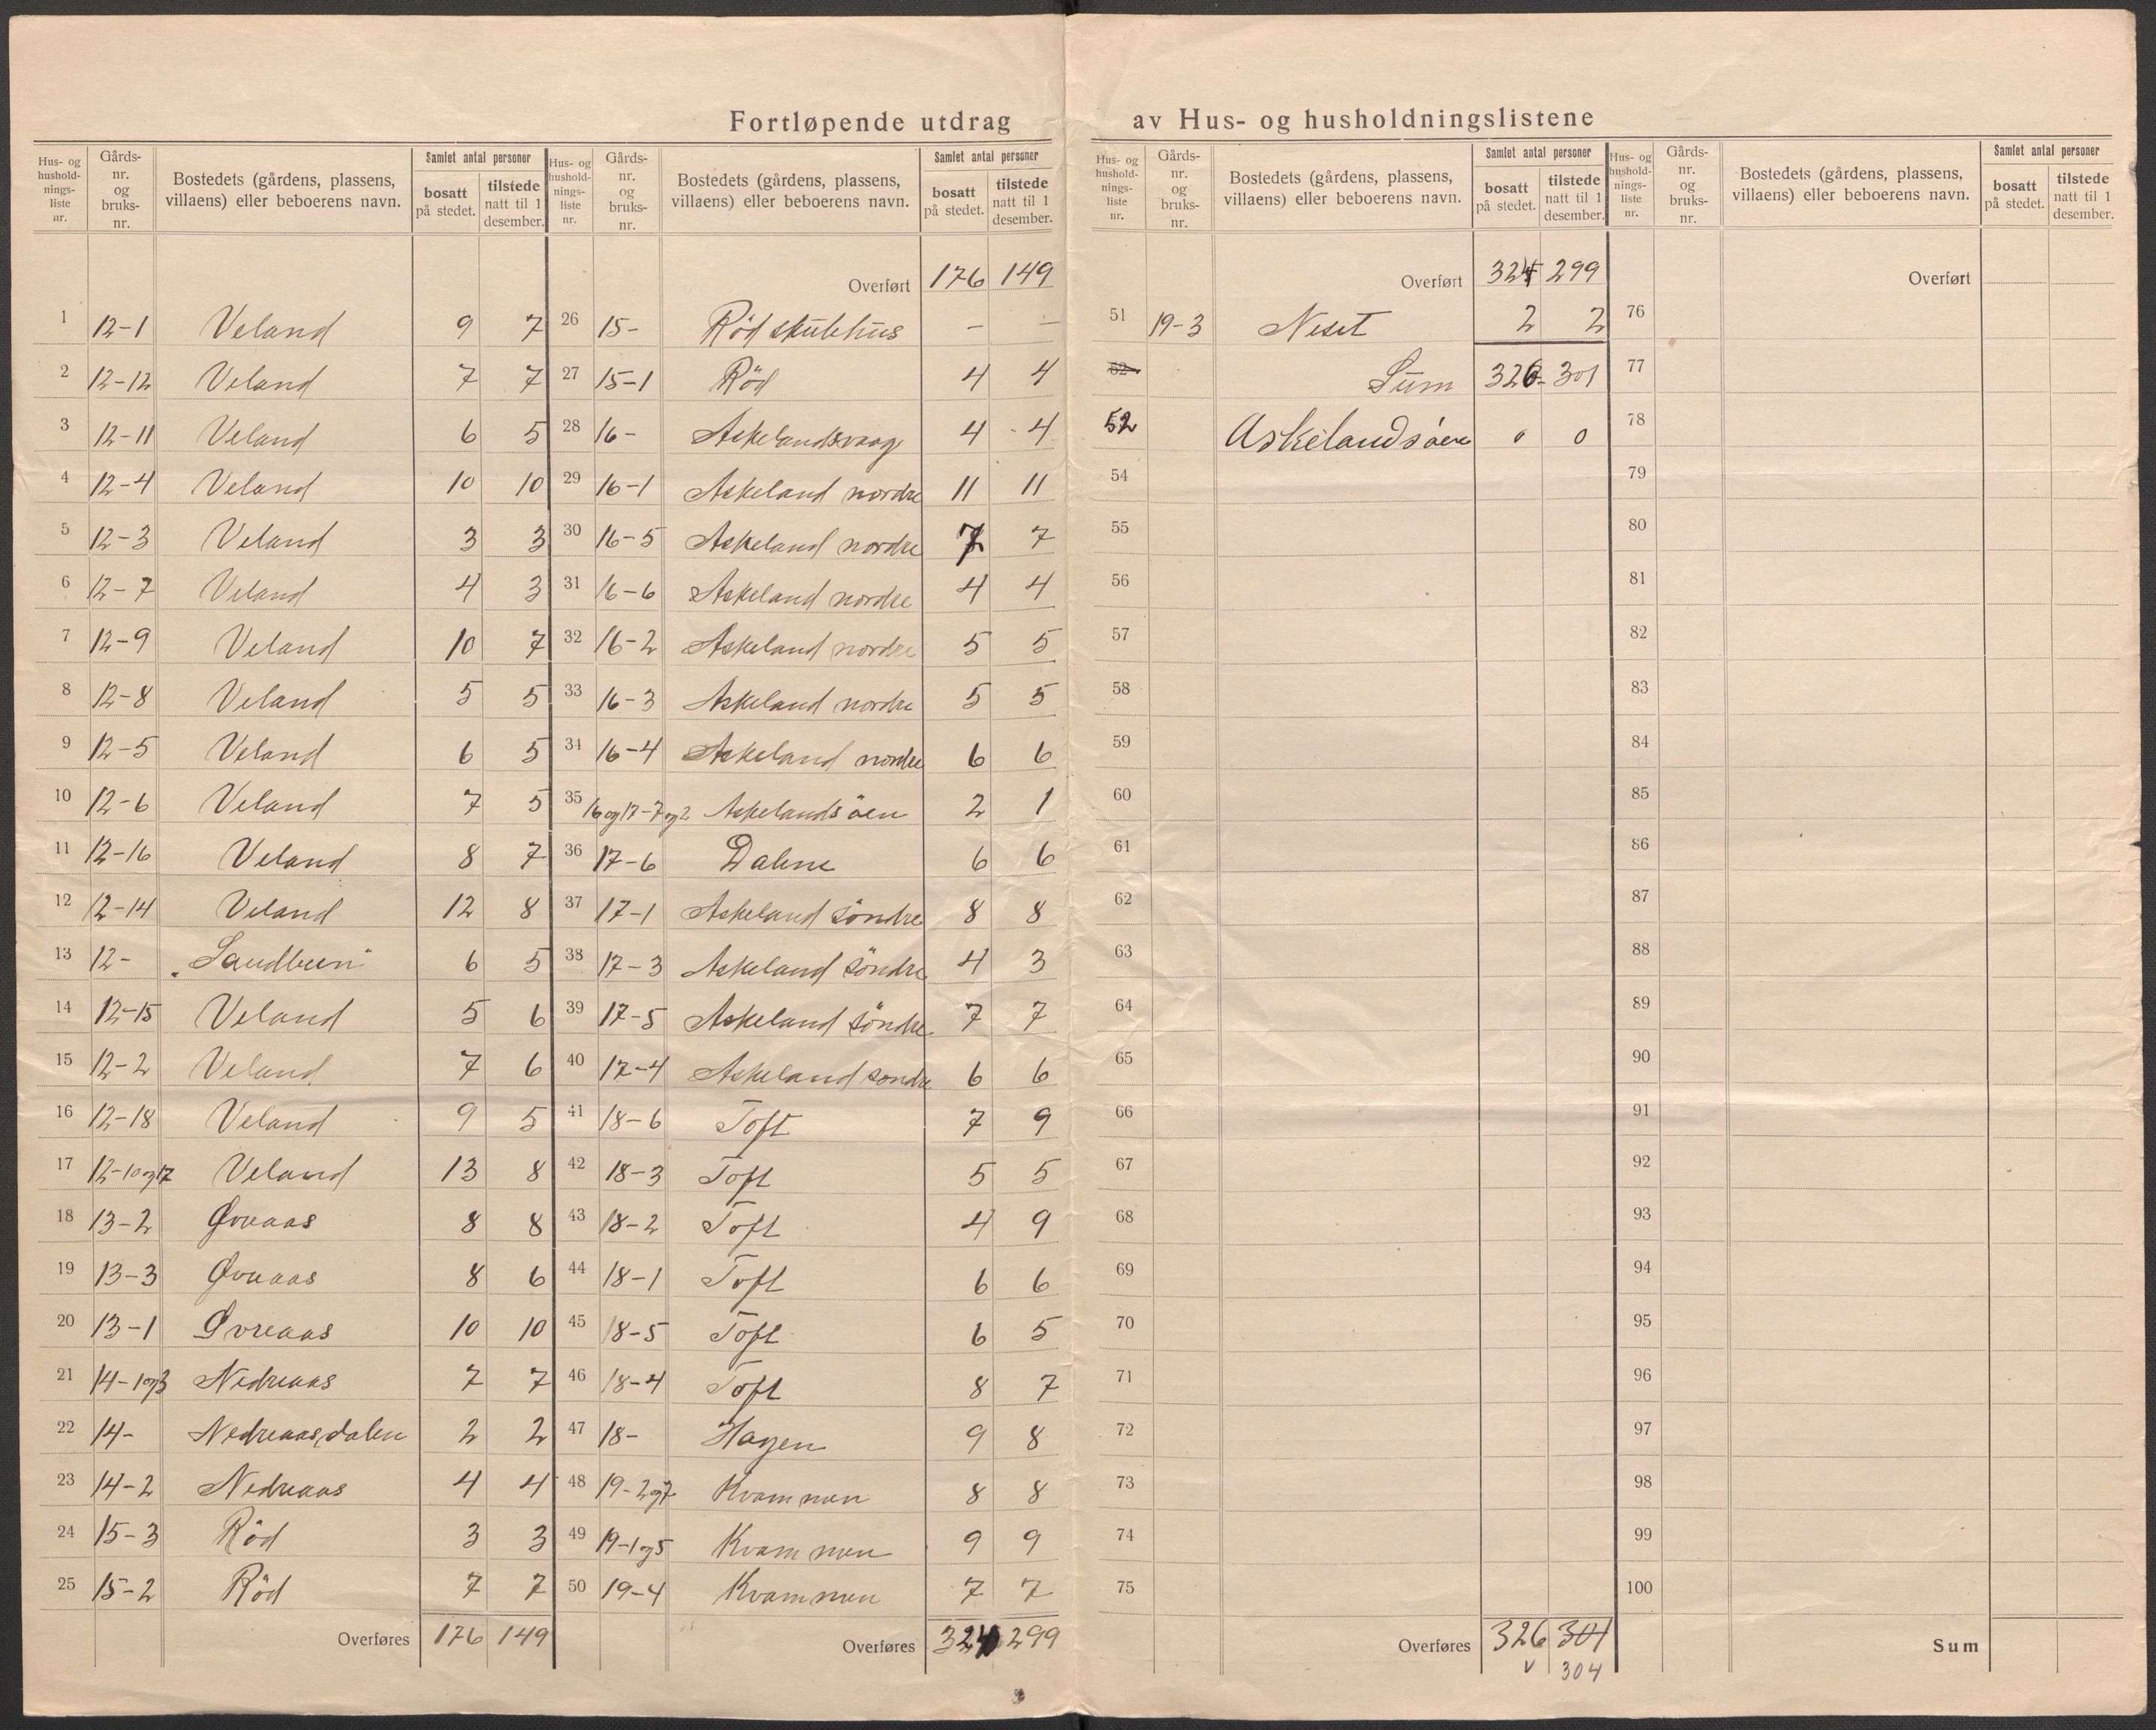 Fortløpende utdrag av Hus- og husholdningslistene
Hus- og hushold- nings- liste nr. | Gårds- nr. og bruks- nr. | Bostedets (gårdens, plassens, villaens) eller beboerens navn. | Samlet antal personer | bosatt på stedet. | tilstede natt til 1 desember.
1 12-1 Veland 9 7
2 12-12 Veland 7 7
3 12-11 Veland 6 5
4 12-4 Veland 10 10
5 12-3 Veland 3 3
6 12-7 Veland 4 3
7 12-9 Veland 10 7
8 12-8 Veland 5 5
9 12-5 Veland 6 5
10 12-6 Veland 7 5
11 12-16 Veland 8 7
12 12-14 Veland 12 8
13 12- 6 5
14 12-15 Veland 5 6
15 12-2 Veland 7 6
16 12-18 Veland 9 5
17 12-10og17 Veland 13 8
18 13-2 Øvreaas 8 8
19 13-3 Øvreaas 8 6
20 13-1 Øvreaas 10 10
21 14-1og3 Nedreaas 7 7
22 14- Nedreaasdalen 2 2
23 14-2 Nedreaas 4 4
24 15-3 Röd 3 3
25 15-2 Röd 7 7
Overføres 176 149
Hus- og hushold- nings- liste nr. | Gårds- nr. og bruks- nr. | Bostedets (gårdens, plassens, villaens) eller beboerens navn. | Samlet antal personer | bosatt på stedet. | tilstede natt til 1 desember.
Overført 176 149
26 15- Röd skulehus - -
27 15-1 Röd 4 4
28 16- Askelandsvaag 4 4
29 16-1 Askeland nordre 11 11
30 16-5 Askeland nordre 7 7
31 16-6 Askeland nordre 4 4
32 16-2 Askeland nordre 5 5
33 16-3 Askeland nordre 5 5
34 16-4 Askeland nordre 6 6
35 16og17-7og2 Askelandsöen 2 1
36 17-6 Dalene 6 6
37 17-1 Askeland söndre 8 8
38 17-3 Askeland söndre 4 3
39 17-5 Askeland söndre 7 7
40 17-4 Askeland söndre 6 6
41 18-6 Toft 7 9
42 18-3 Toft 5 5
43 18-2 Toft 4 9
44 18-1 Toft 6 6
45 18-5 Toft 6 5
46 18-4 Toft 8 7
47 18- Hagen 9 8
48 19-2og7 Kvammen 8 8
49 19-1og5 Kvammen 9 9
50 19-4 Kvammen 7 7
Overføres 324 299
Hus- og hushold- nings- liste nr. | Gårds- nr. og bruks- nr. | Bostedets (gårdens, plassens, villaens) eller beboerens navn. | Samlet antal personer | bosatt på stedet. | tilstede natt til 1 desember.
Overført 324 299
51 19-3 Neset 2 2
52 Sum 326 301
52 Askelandsöen 0 0
54
55
56
57
58
59
60
61
62
63
64
65
66
67
68
69
70
71
72
73
74
75
Overføres 326 301
v 304
Hus- og hushold- nings- liste nr. | Gårds- nr. og bruks- nr. | Bostedets (gårdens, plassens, villaens) eller beboerens navn. | Samlet antal personer | bosatt på stedet. | tilstede natt til 1 desember.
Overført
76
77
78
79
80
81
82
83
84
85
86
87
88
89
90
91
92
93
94
95
96
97
98
99
100
Sum